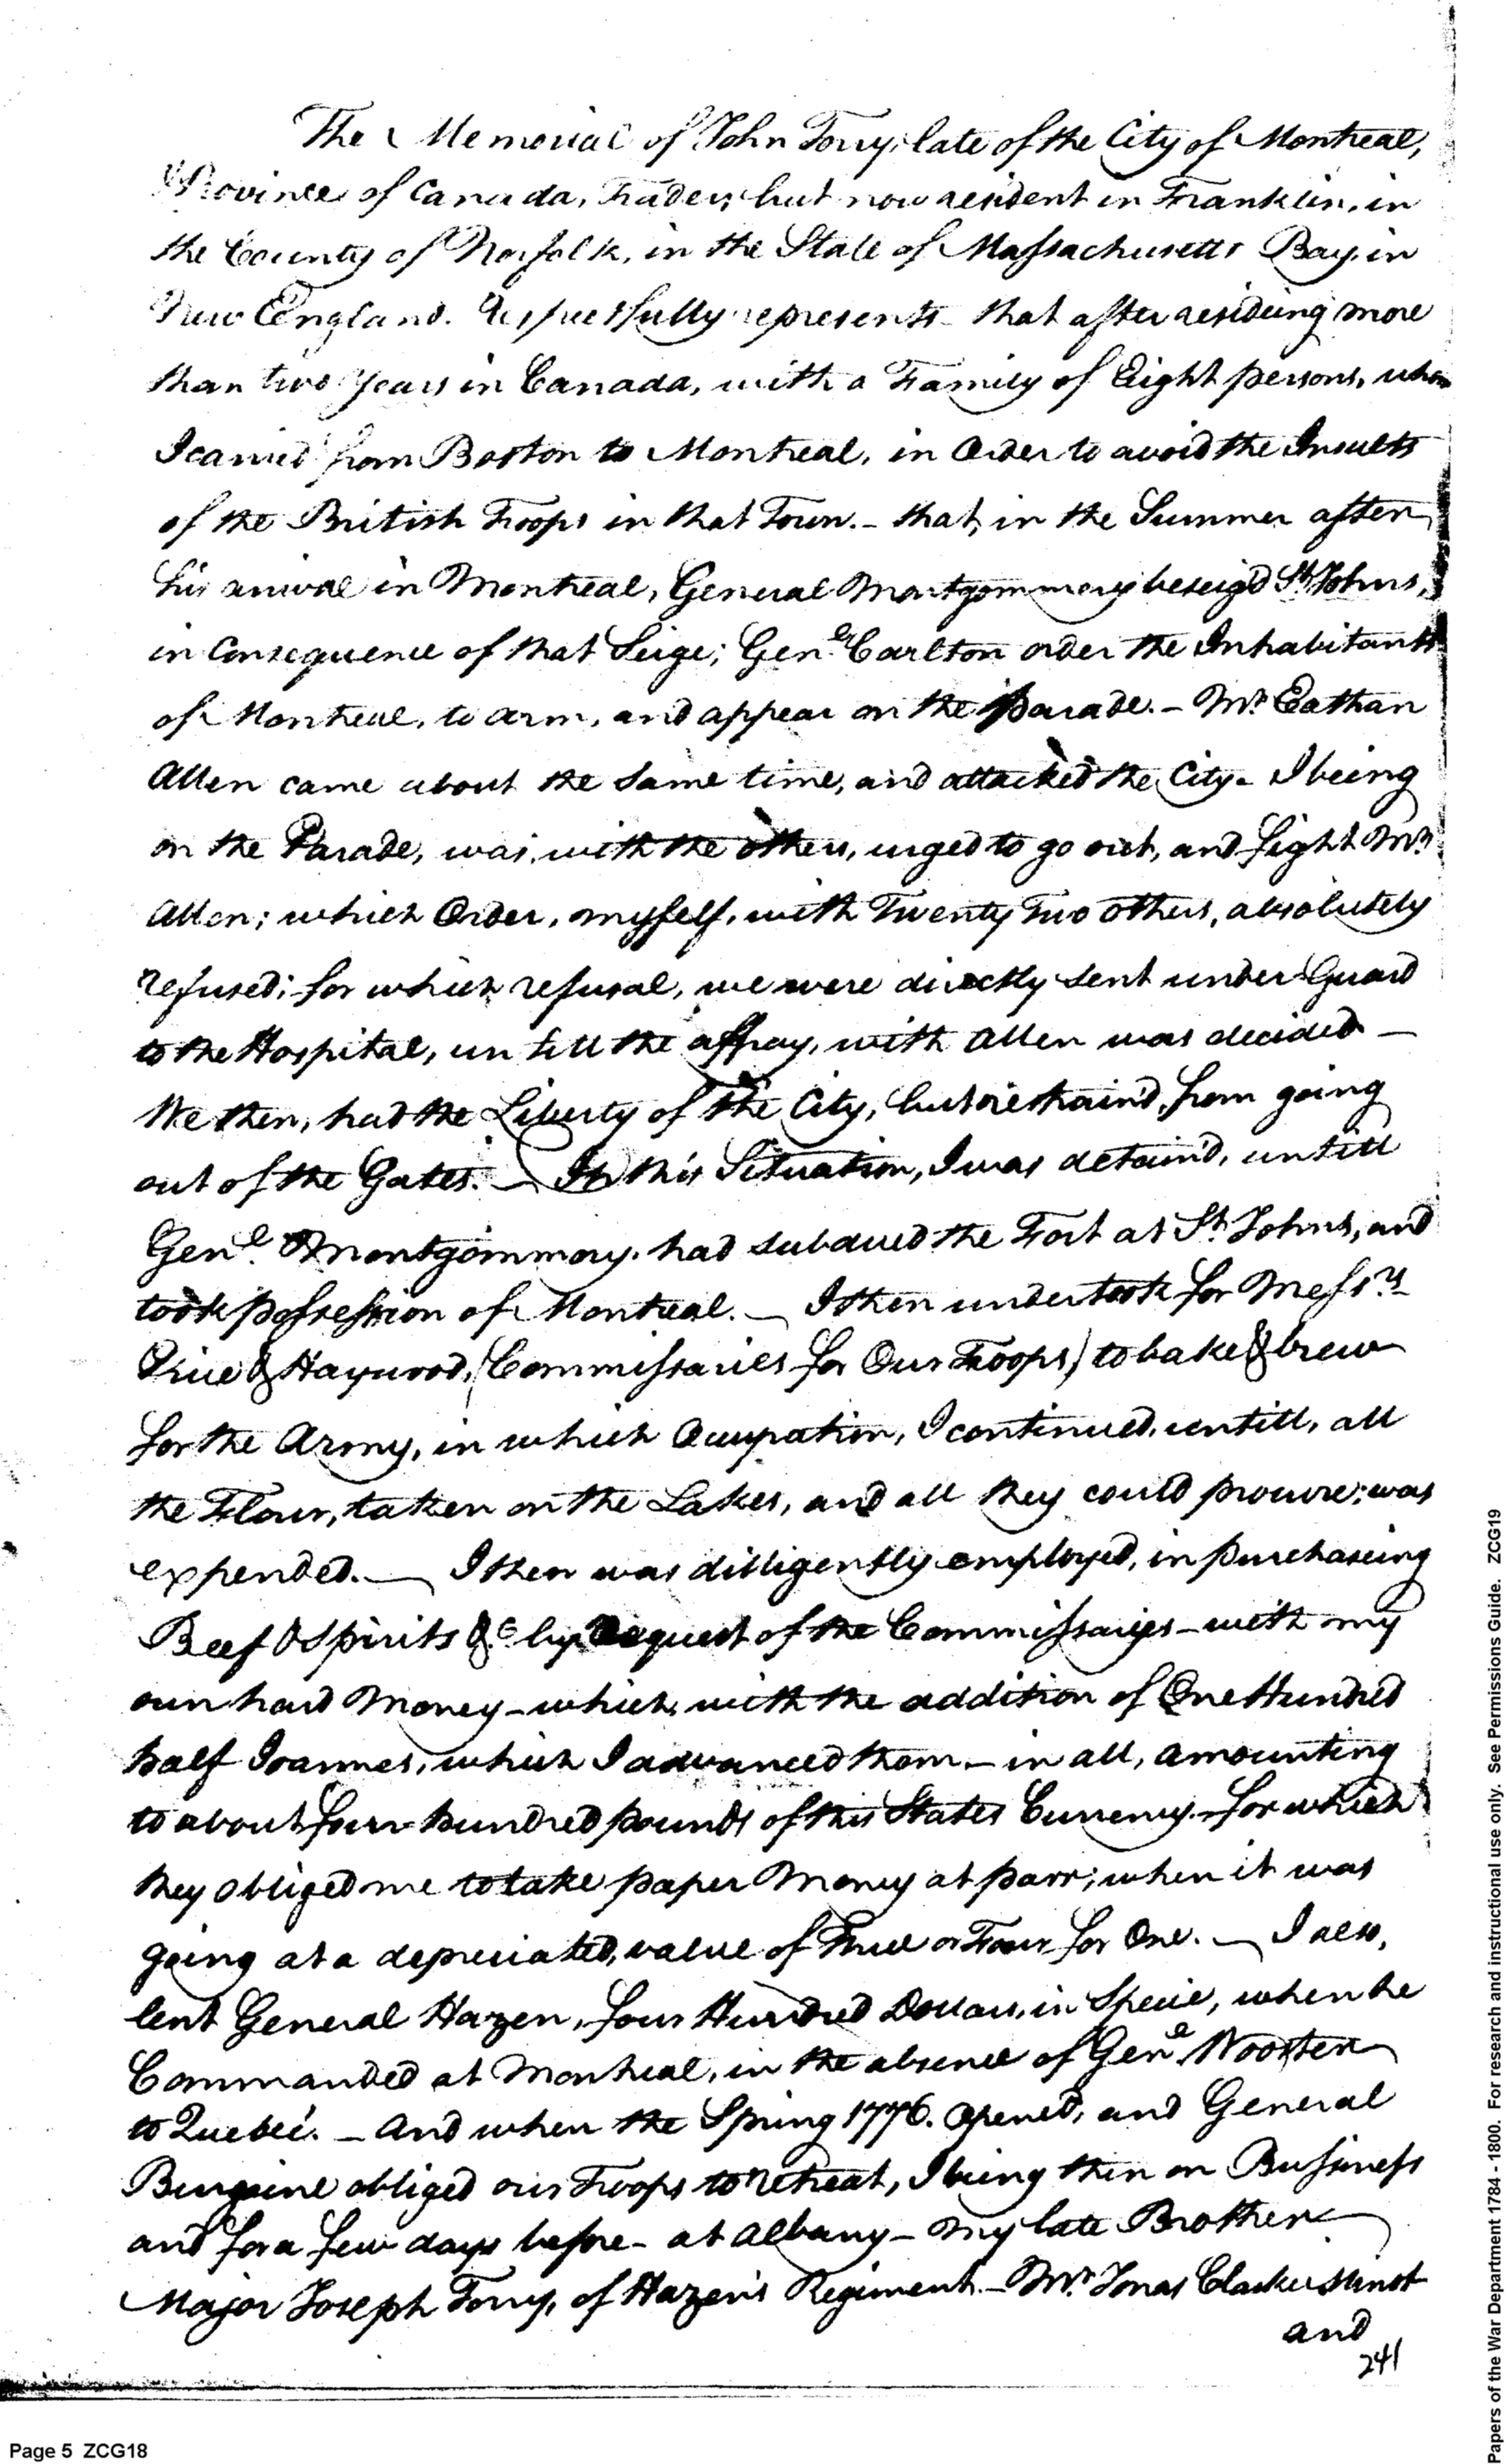 The Memorial of John Torry, late of the City of Montreal,
Province of Canada, Trader, but now resident in Franklin, in
the County of Norfolk, in the State of Massachusetts Bay, in
New England. Respectfully represents - that after resideing more
than two Years in Canada, with a Family of Eight persons, whom
I carried from Boston to Montreal, in Order to avoid the Insults
of the British Troops in that Town. - that, in the Summer after
his arrival in Montreal, General Montgommery beseig'd St. Johns,
in Consequence of that Seige; Genl. Carlton order the Inhabitants
of Montreal, to arm, and appear on the Parade. - Mr. Eathan
Allen came about the same time, and attacked the City - I being
on the Parade, was, with the others, urged to go out, and fight Mr.
Allen; which Order, myself, with Twenty Two others, absolutely
refused; for which refusal, we were directly sent under Guard
to the Hospital, untill the affray, with Allen was decided —
We then, had the Liberty of the City, but restraind, from going
out of the Gates. — In this Situation, I was detain'd, untill
Genl. Montgommory had subdued the Fort at St. Johns, and
took possession of Montreal. — I then undertook for Messrs.
Price & Haywood, (Commissaries for Our Troops) to bake & brew
for the Army, in which Occupation, I continued, untill, all
the Flour, taken on the Lakes, and all they could procure; was
expended. — I then was dilligently employed, in purchaseing
Beef & Spirits &c by Request of the Commissaries - with my
own hard Money - which, with the addition of One Hundred
half Joannes, which I advanced them - in all, amounting
to about four hundred pounds of this States Currency - for which
they obliged me to take paper Money at parr; when it was
going at a depreciated, value of Three or Four for One. — I also,
lent General Hazen, four Hundred Dollars, in Specie, when he
Commanded at Montreal, in the absence of Genl. Wooster
to Quebec. - And when the Spring 1776. Opened, and General
Burgoine obliged our Troops to retreat, I being then on Business
and for a few days before - at Albany - My late Brother
Major Joseph Torry, of Hazen's Regiment - Mr. Jonas Clarke Minot
and
241
Page 5 ZCG18
Papers of the War Department 1784 - 1800. For research and instructional use only. See Permissions Guide. ZCG19